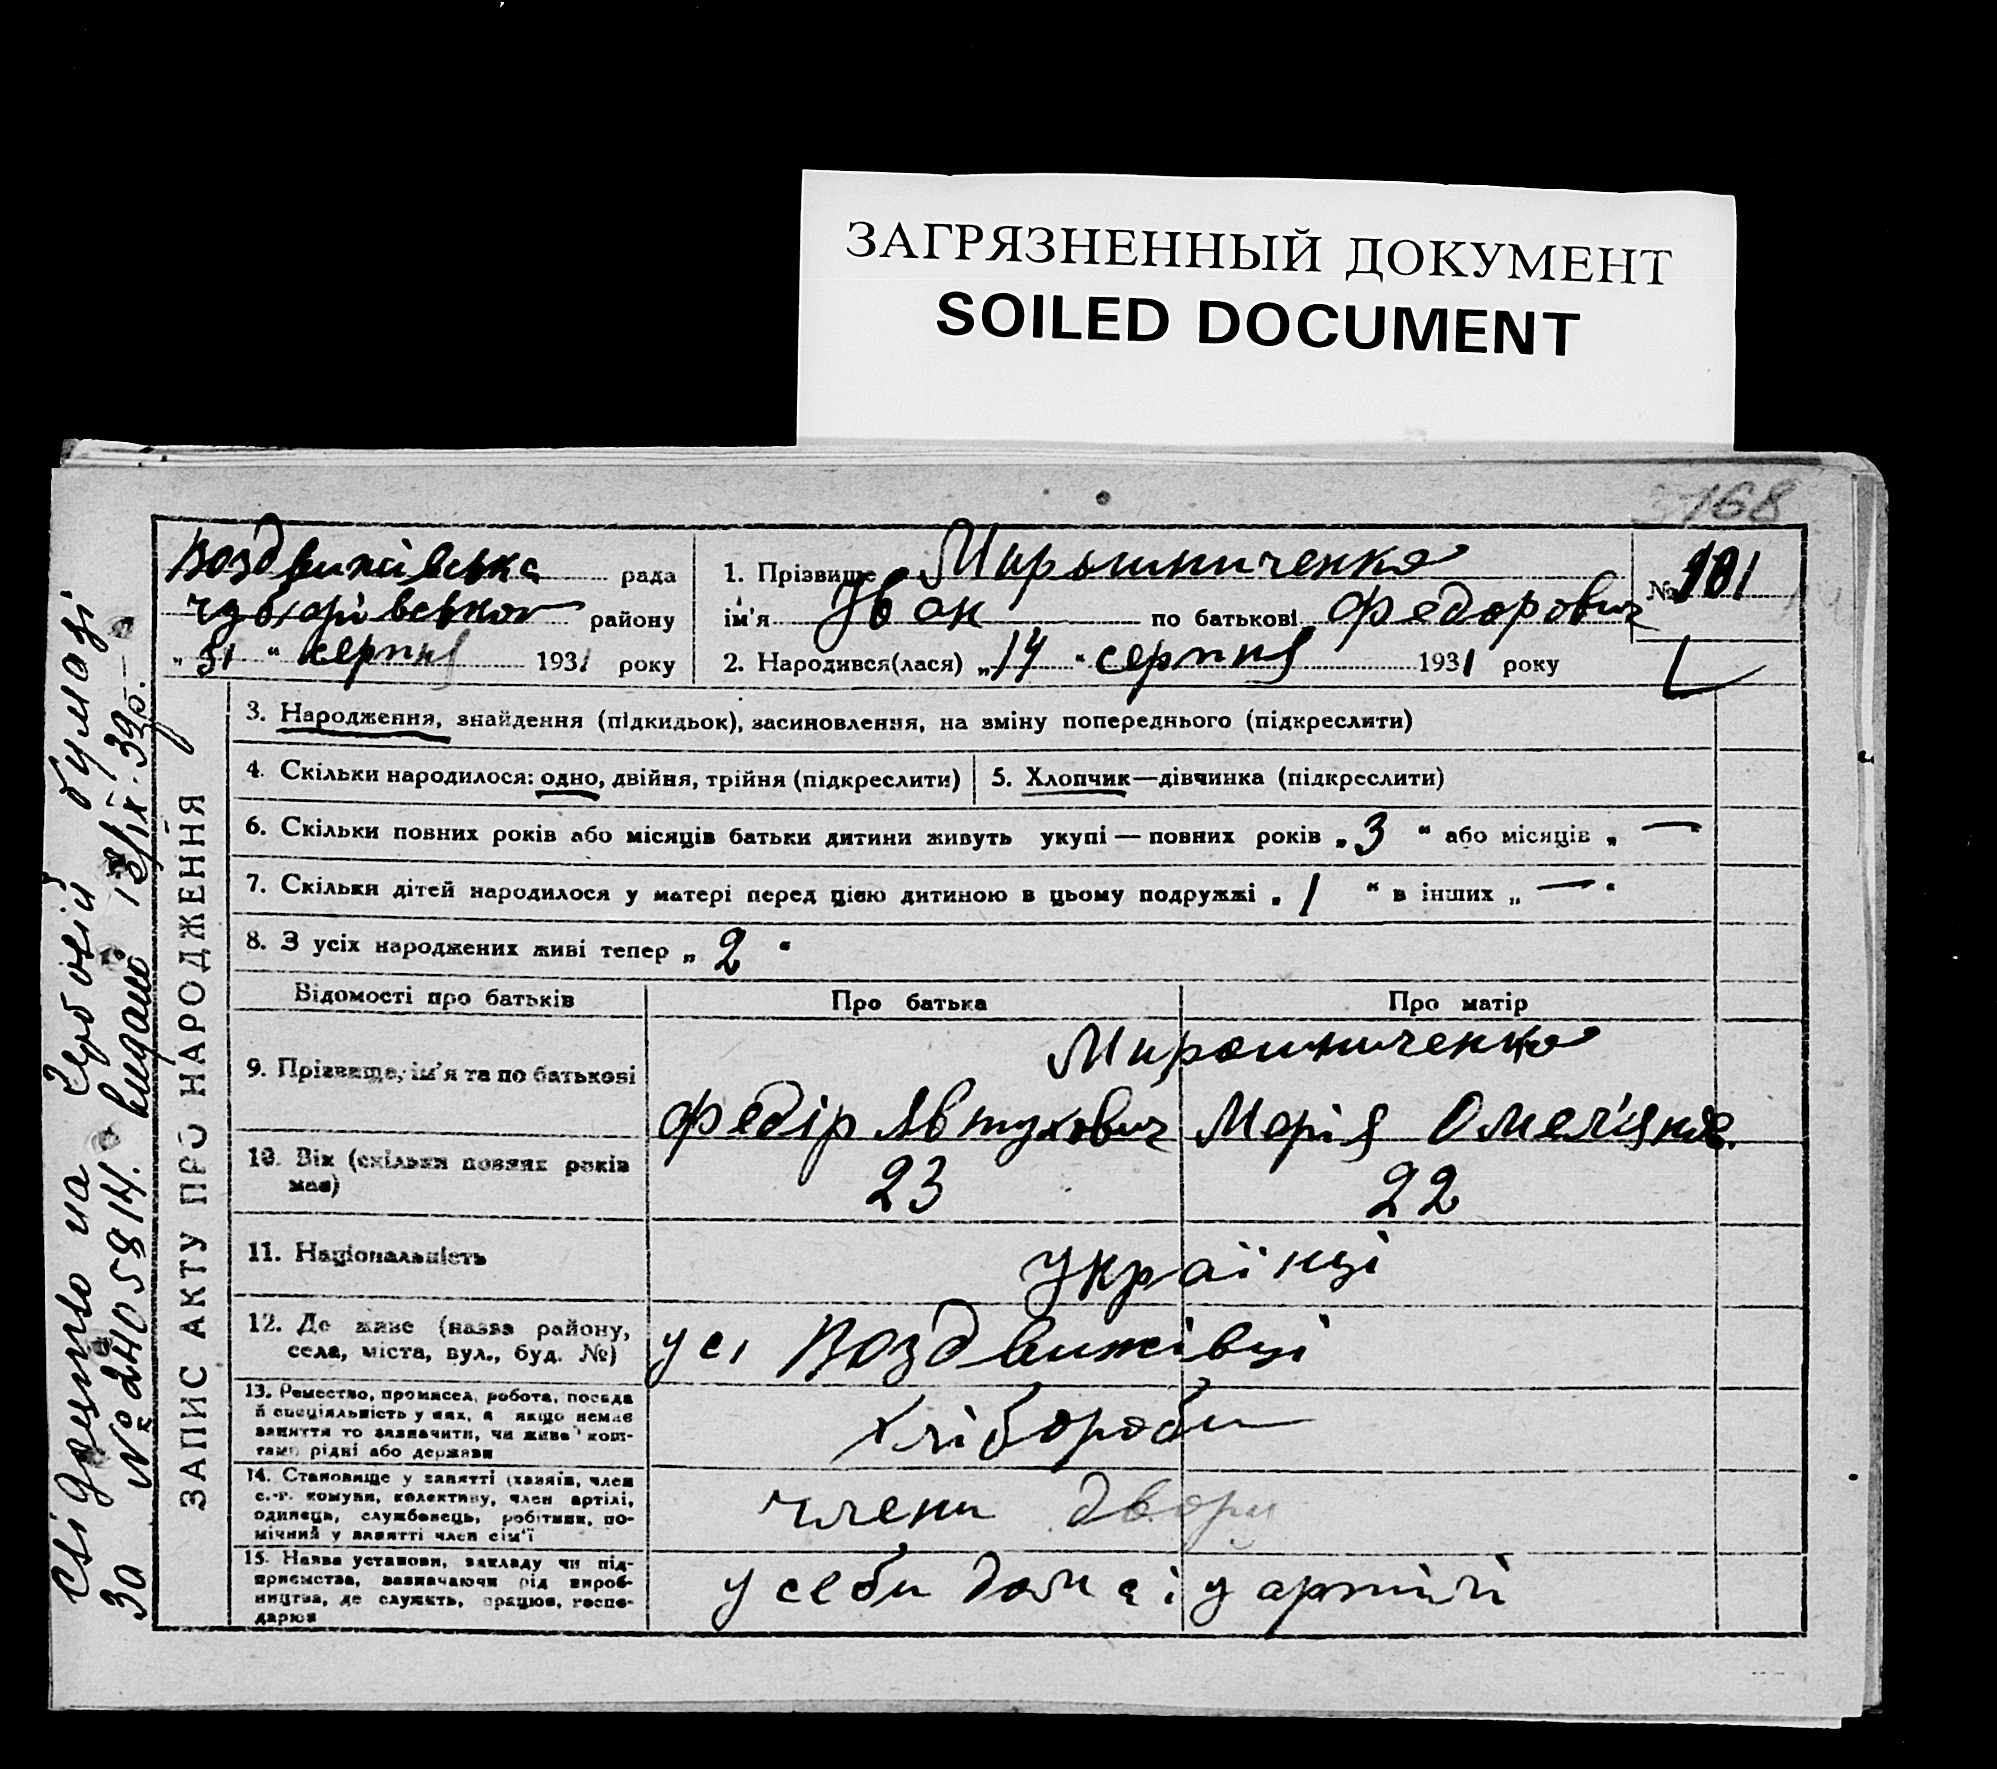 ЗАГРЯЗНЕННЫЙ ДОКУМЕНТ
SOILED DOCUMENT
168
Воздвижівська рада
району
„31“ серпня 1931 року
1. Прізвище Мирошниченко
ім'я Іван по батькові Федорович
№ 181
2. Народився(лася) „14“ серпня 1931 року
ЗАПИС АКТУ ПРО НАРОДЖЕННЯ
3. Народження, знайдення (підкидьок), засиновлення, на зміну попереднього (підкреслити)
4. Скільки народилося: одно, двійня, трійня (підкреслити)
5. Хлопчик—дівчинка (підкреслити)
6. Скільки повних років або місяців батьки дитини живуть укупі — повних років „3“ або місяців „—
7. Скільки дітей народилося у матері перед цією дитиною в цьому подружжі „1“ в інших „—“
8. З усіх народжених живі тепер „2“
Відомості про батьків
Про батька
Про матір
9. Прізвище, ім'я та по батькові
Мирошниченко
Федір Явтухович
Марія Омелянів.
10. Вік (скільки повних років
має)
23
22
11. Національність
Українці
12. Де живе (назва району,
села, міста, вул., буд. №)
у сі Воздвижівці
13. Ремество, промисел, робота, посада
й спеціяльність у них, а якщо немає
заняття то зазначити, чи живе кош-
тами рідні або держави
хлібороби
14. Становище у занятті (хазяїн, член
с.-г. комуни, колективу, член артілі,
одинець, службовець, робітник, по-
мічний у занятті член сім'ї
члени двору
15. Назва установи, закладу чи під-
приємства, зазначаючи рід вироб-
ництва, де служить, працює, госпо-
дарює
у себи дома і у артілі
Свідоцтво на Червоній бумазі
За № 2405814. видано 13/IX-39р.